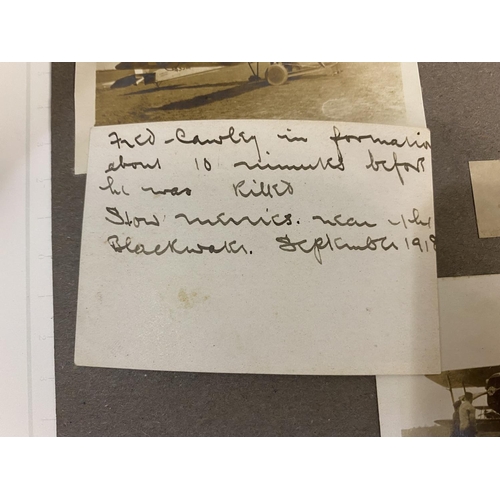 Fred Cawley in formation
about 10 minutes before
he was killed
Stow Merries. near the
Blackwater. September 1918